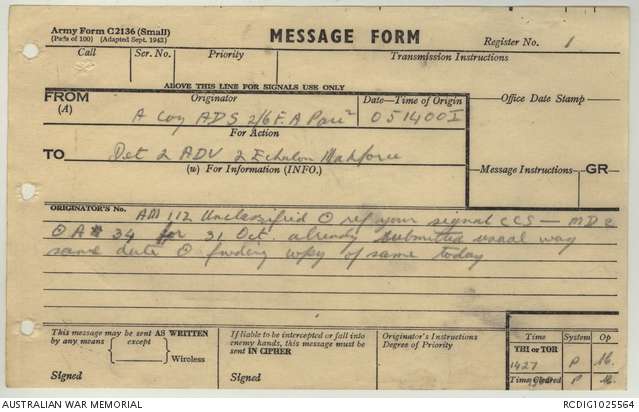 Army Form C2136 (Small)
(Pads of 100) (Adapted Sept. 1943)
MESSAGE FORM
Register No. 1
Call
Ser. No.
Priority
Transmission Instructions
ABOVE THIS LINE FOR SIGNALS USE ONLY
FROM
(A)
Originator
A Coy ADS 2/6 F.A
Date—Time of Origin
051400I
Office Date Stamp
For Action
TO
Det 2 ADV 2 Echelon
(w) For Information (INFO.)
Message Instructions
GR
ORIGINATOR'S No.
AM 112 Unclassified O ref your signal CCS — MD2
O A 34 for 31 Oct. already submitted usual way
same date O copy of same today
This message may be sent AS WRITTEN
by any means except
Wireless
Signed
If liable to be intercepted or fall into
enemy hands, this message must be
sent IN CIPHER
Signed
Originator's Instructions
Degree of Priority
Time
System
Op
THI or TOR
1427
P
Time Cleared
P
AUSTRALIAN WAR MEMORIAL
RCDIG1025564